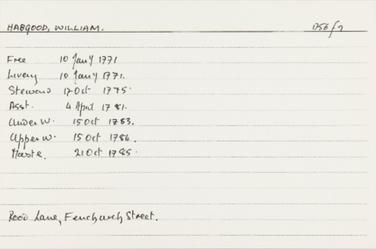 HABGOOD, WILLIAM. 1756/7
Free 10 Jany 1771
Livery 10 Jany 1771.
Steward 17 Oct 1775.
Asst. 4 April 1781.
Under W. 15 Oct 1783.
Upper W. 15 Oct 1784.
Master. 21 Oct 1785.
Rood Lane, Fenchurch Street.